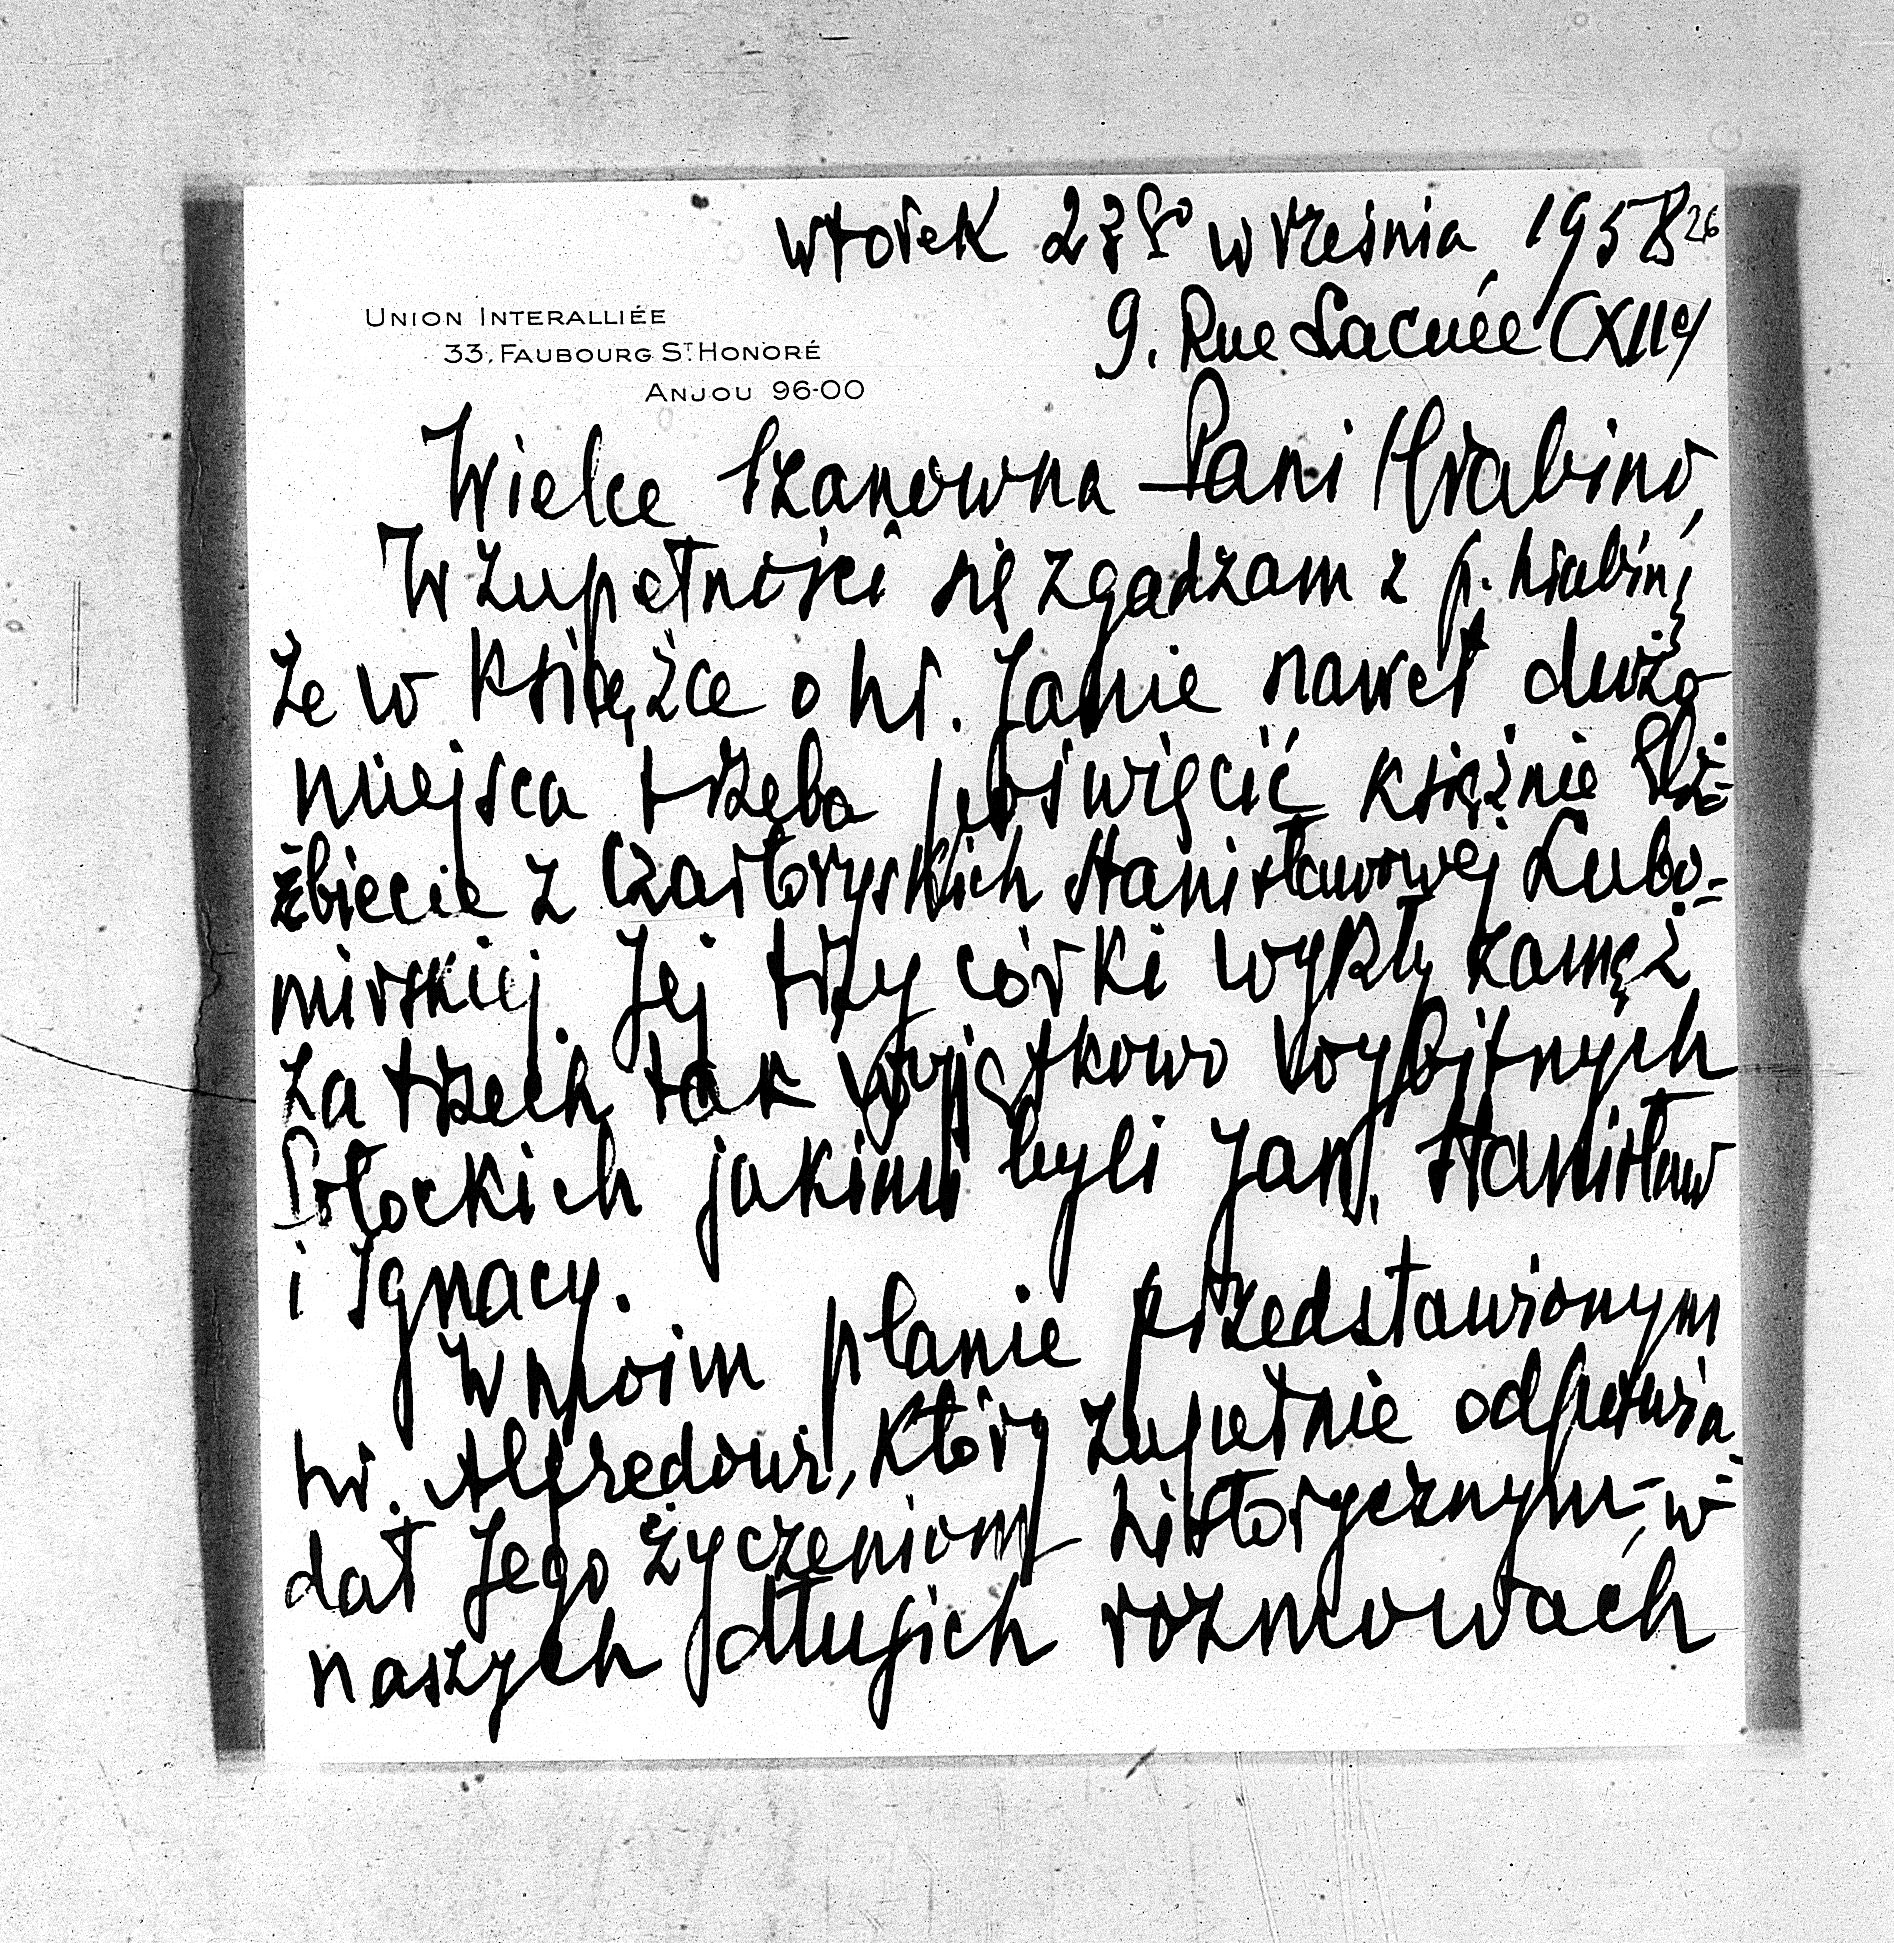 wtorek 23go września 1958 26
9. Rue Lacuée (XIIe)
UNION INTERALLIÉE
33, FAUBOURG ST HONORÉ
ANJOU 96-00
Wielce Szanowna Pani Hrabino,
W zupełności się zgadzam z p. hrabiną
że w książce o hr. Janie nawet dużo
miejsca trzeba poświęcić księżnie Elż-
żbiecie z Czartoryskich Stanisławowej Lubo-
mirskiej. Jej trzy córki wyszły zamęż
za trzech tak wyjątkowo wybitnych
Potockich jakimi byli Jan, Stanisław
i Ignacy.
W moim planie przedstawionym
hr. Alfredowi, który zupełnie odpowia-
dał Jego życzeniom historycznym, w
naszych długich rozmowach